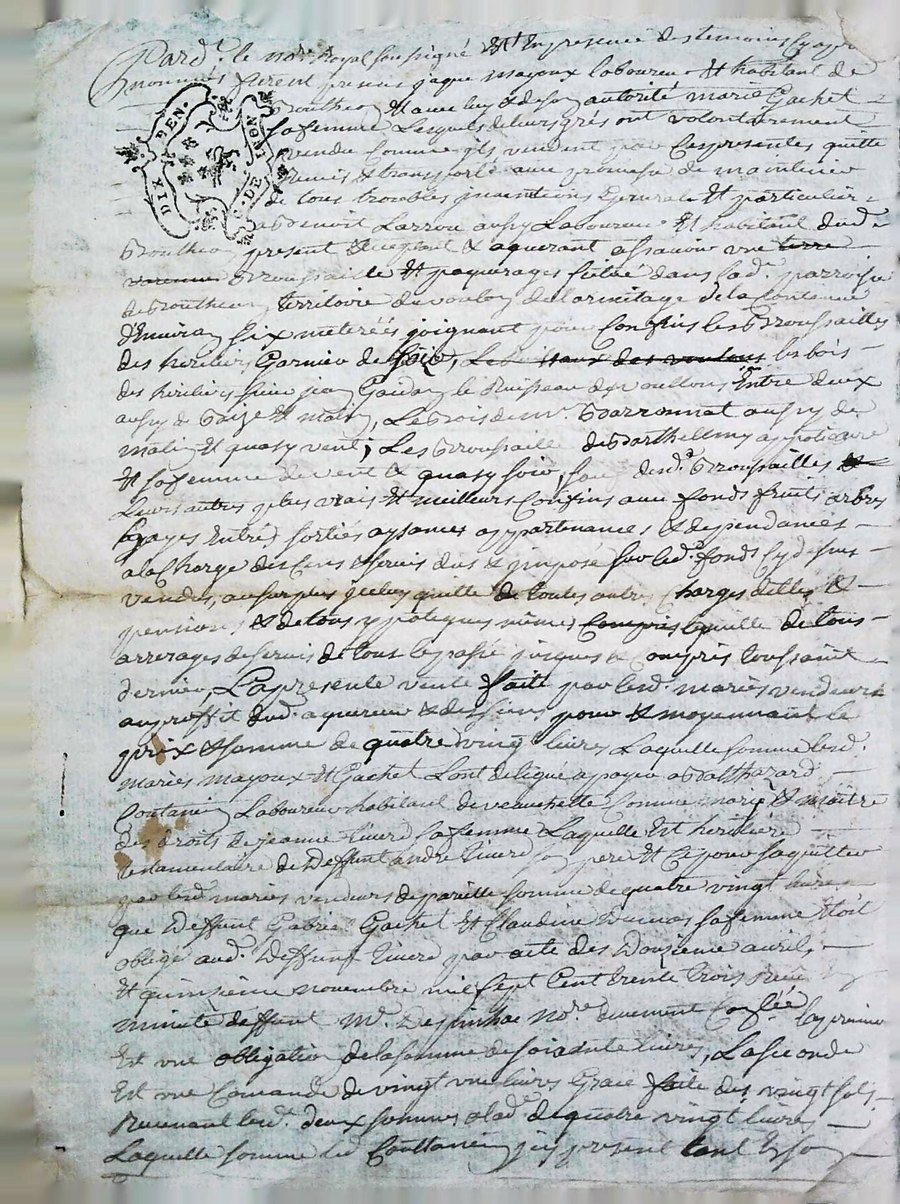 Pard.t le no.re Royal soussigné Et En presence des temoins cy apres
nommés furent presens jaque mayoux laboureur Et habitant de
Bouthéon Et avec luy & de son autorité marie Gachet
DIX DEN. DE LION
sa femme Lesquels de leurs grés ont volontairement
vendu Comme ils vendent par Ces presentes quitte
remis & transporté avec promesse de maintenir
de tous troubles Generale Et particulier
a Benoit Larrou aussy Laboureur Et habitant dud.
Bouthéon present & aceptant & aquerant assavoir une terre
varenne Broussaille Et paquerages scitué dans lad. parroisse
de Bouthéon territoire de larmitage de la Contenue
d'Environ six meterées joignant pour Confins les Broussailles
des heritiers Garnier de soir, les bois
des heritiers sieur jean le Ruisseau des voullons Entre deux
aussy de Bize Et matin, Le Bois de mr. Barronnat aussy de
matin Et quasy vent, Les Broussailles de Barthellemy appoticaire
Et sa femme de vent & quasy soir, sauf desd. Broussailles
Leurs autres plus vrais Et meilleurs Confins avec fonds fruits arbres
Entrées sorties aysances appartenances & dependances
a la Charge des Cens & servis dus & imposé sur led. fonds Cy dessus
vendus, au surplus quitte de toutes autres Charges dettes &
pensions, & de tous ypoteques même Compris quitte de tous
arrerages de servis de tout le passé jusques & Compris toussaint
dernier, La presente vente faite par lesd. mariés vendeurs
au proffit dud. aquereur & des siens pour & moyennant le
prix & somme de quatre vingt livres Laquelle somme lesd.
mariés mayoux Et Gachet L'ont deligué a payer a Balthazard
Contanien Laboureur habitant de veauchette Comme mary & maitre
des droits de jeanne sa femme Laquelle Est heritiere
testamentaire de Deffunt andre son pere Et Ce pour s'aquitter
par lesd. mariés vendeurs de pareille somme de quatre vingt livres
que Deffunt Gabriel Gachet Et Claudine sa femme Etoit
obligé aud. Deffunt par acte des Douzieme avril,
Et quinzieme novembre mil sept Cent trente trois
minute deffunt Mr. no.re duement Conllée la premiere
Est une obligation de la somme de soixante livres, La seconde
Est une Comande de vingt une livres Grace faite des vingt sols
Revenant lesd. deux sommes a lad. de quatre vingt livres
Laquelle somme led. Conttanien icy present tant En son